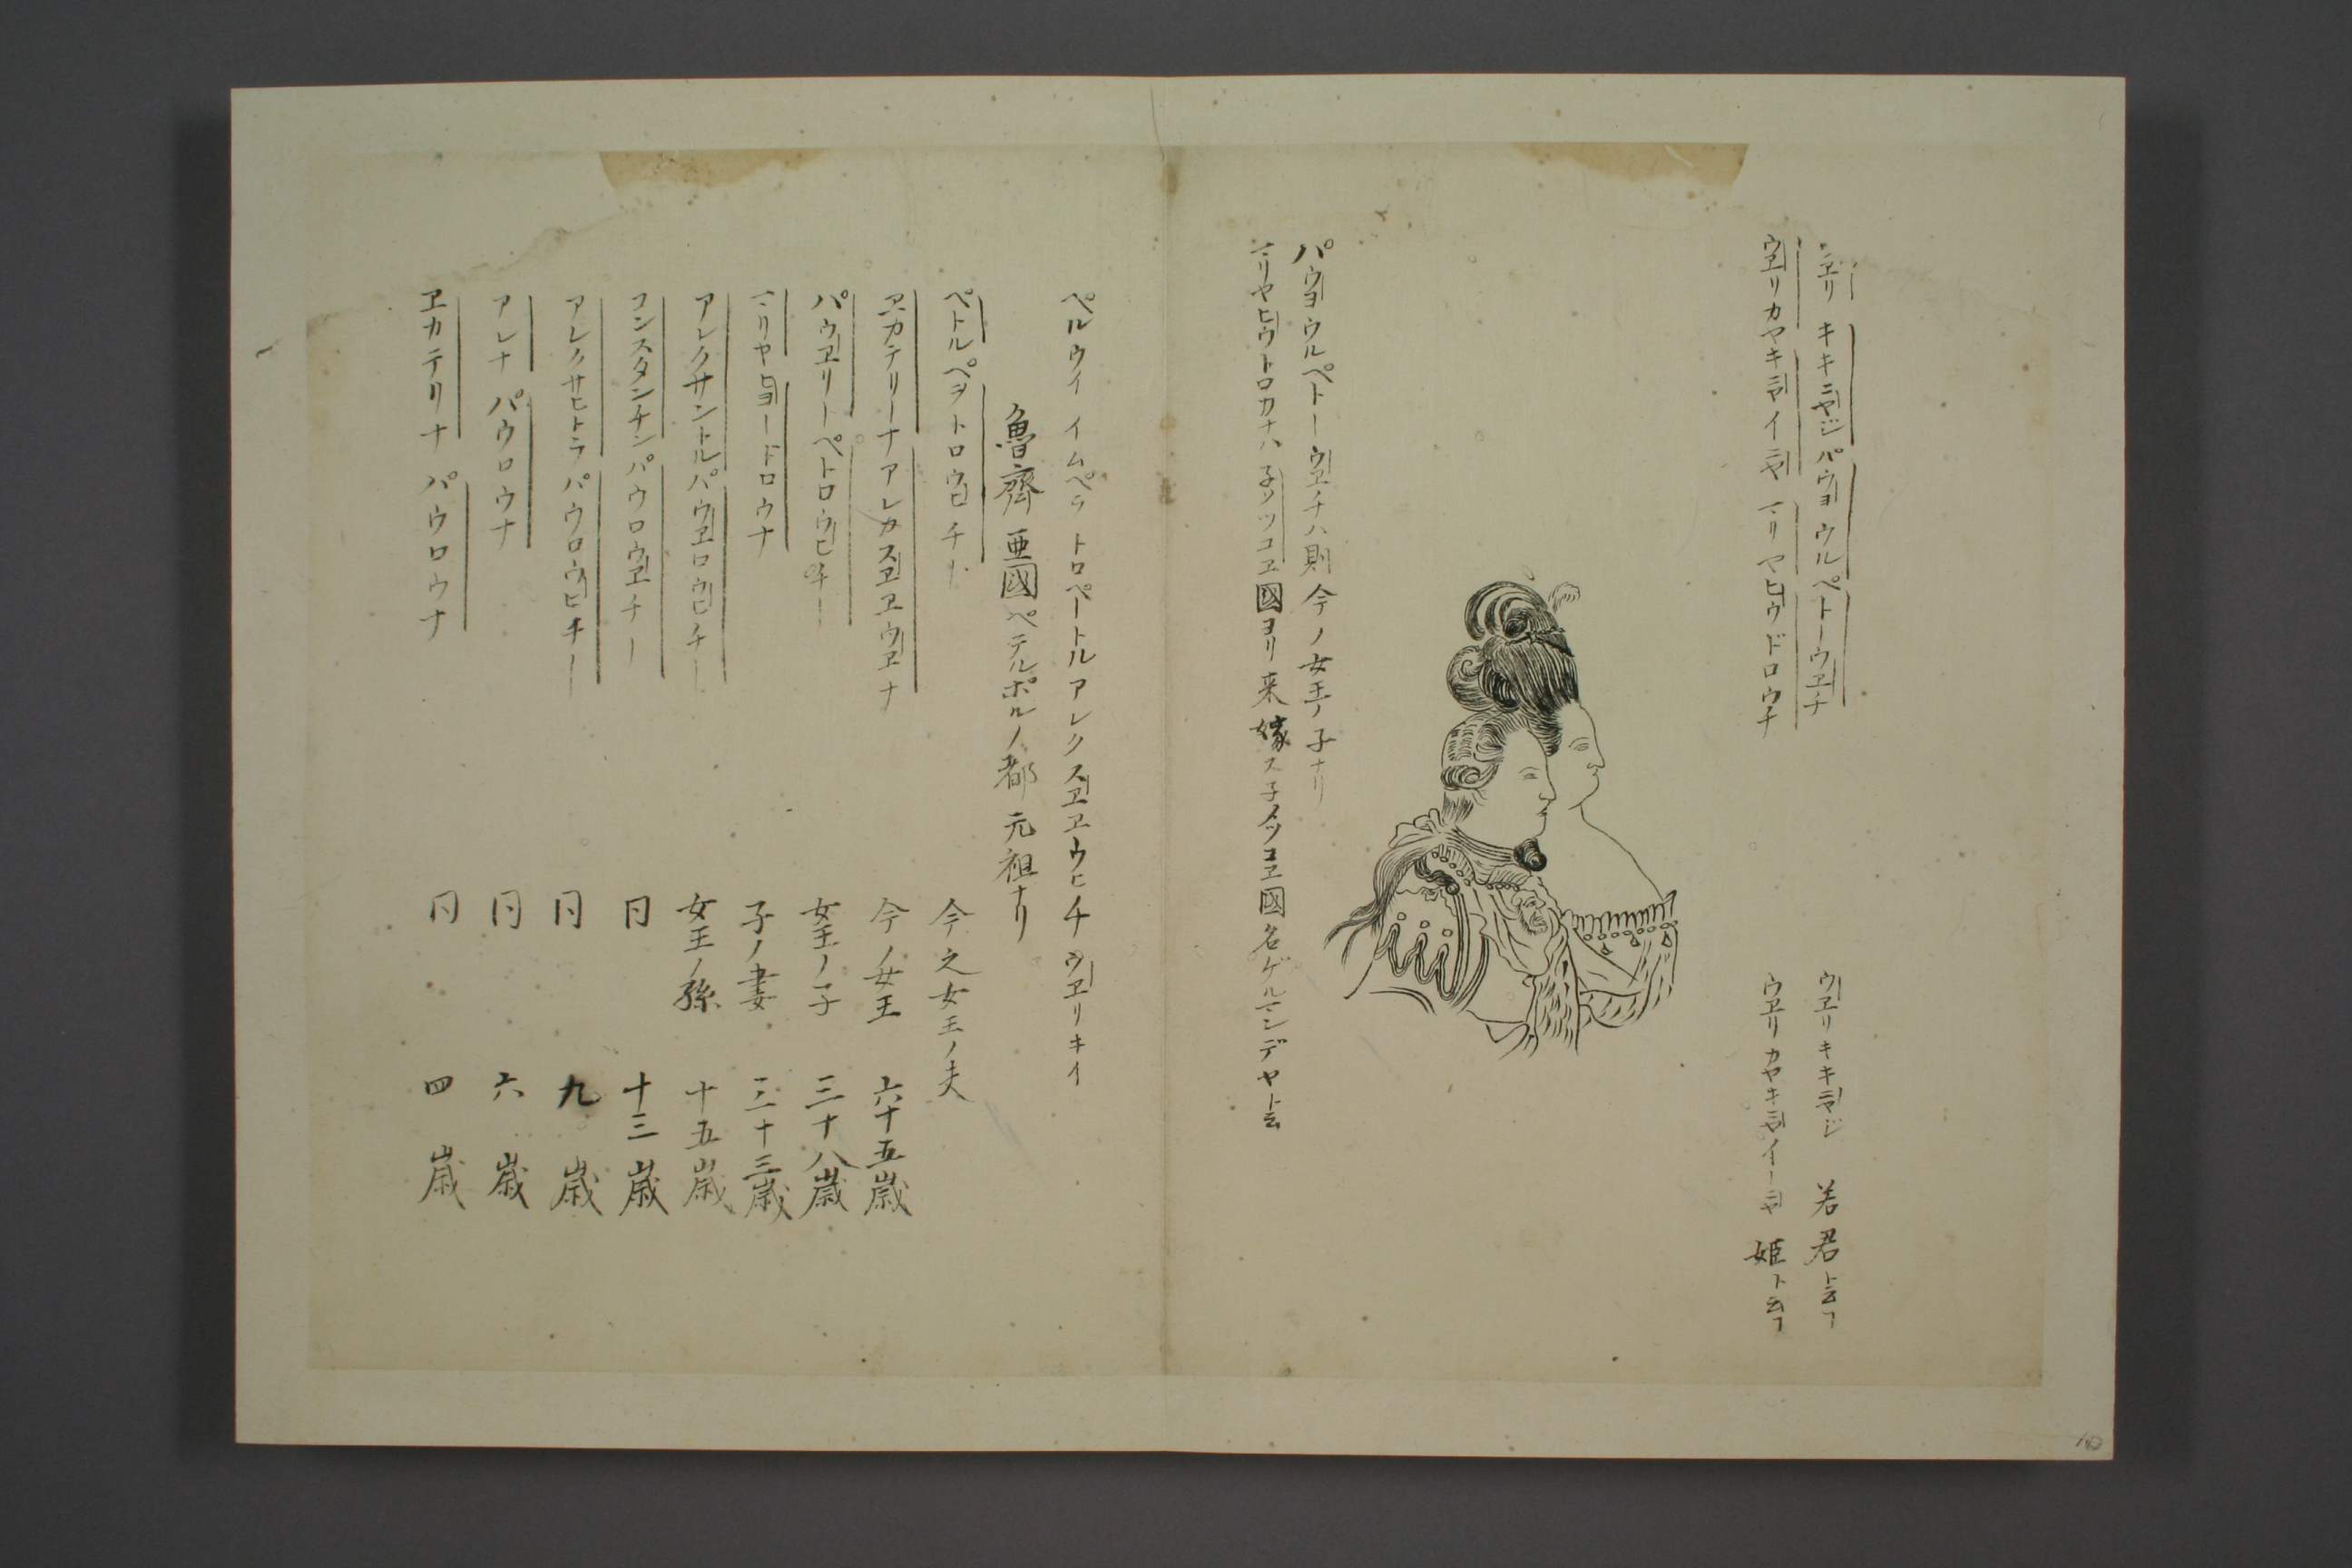 ウヱリキキニヤジパウヨウルペトーウヱチ
ウヱリキキニヤジ 若君ト云フ
ウヱリカヤキニヤイニヤマリヤヒヨウドロウナ
ウヱリカヤキニヤイーニヤ 姫ト云フ
パウヨウルペトーウヱチハ則今ノ女王ノ子ナリ
マリヤヒヨウトロカナハ子ソツコヱ國ヨリ来嫁ス子メツコヱ國名ゲルマンデヤト云
ペルウイイムペラトロペートルアレクスヱヱウヒチウヱリキイ
魯齊亜國ペテルポルノ都元祖ナリ
ペトルペヲトロウヒチー 今之女王ノ夫
ヱカテリーナアレカスヱヱウヱナ 今ノ女王 六十五歳
パウヱリーペトロウヒチー 女王ノ子 三十八歳
マリヤヒヨードロウナ 子ノ妻 三十三歳
アレクサントルパウヱロウヒチー 女王ノ孫 十五歳
コンスタンチンパウロウヱチー 同 十三歳
アレクサヒトラパウロウヒチー 同 九歳
アレナパウロウナ 同 六歳
ヱカテリナパウロウナ 同 四歳
10